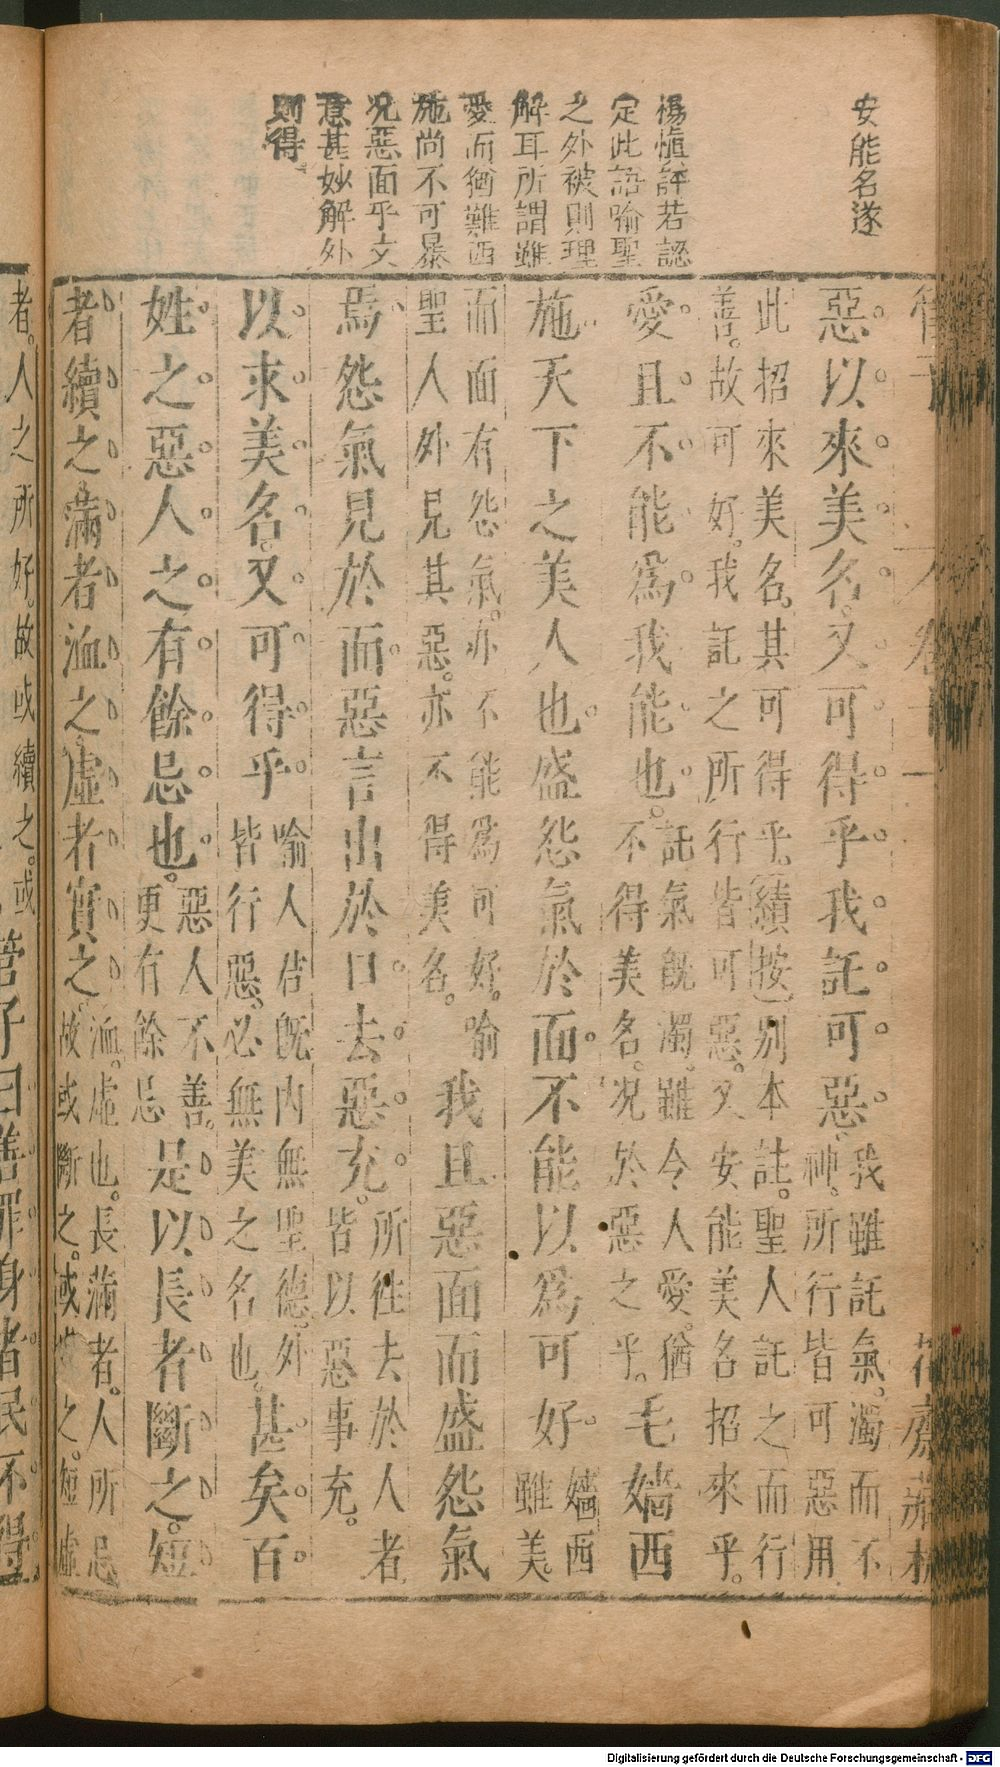 安能名遂
楊慎評若認
定此語喻聖
之外被則理
解耳所謂雖
愛而猶難西
施尚不可暴
况惡面乎文
意甚妙解外
則得。
惡。以。來。美。名。又可得。乎。我託。可。惡。
我雖託氣。濁而不
神。所行皆可惡用
此招來美名。其可得乎。(續按)別本註。聖人託之而行
善。故可好。我託之所行皆可惡。又安能美名招來乎。
愛。且。不。能。爲。我能。也。
託氣既濁。雖令人愛。猶
不得美名。况於惡之乎。
毛嬙西
施。天下之美人也。盛怨氣於面。不能以爲可好。
嬙西
雖美。
而面有怨氣。亦不能爲可好。喻
聖人外見其惡。亦不得美名。
我且惡面而盛怨氣
焉、怨氣見於面。惡言出於口。去。惡。充。
所往去於人者
皆以惡事充。
以。求。美。名。又。可。得。乎。
喻人君既内無聖德。外
皆行惡。必無美之名也。
甚。矣。百。
姓。之。惡。人。之。有。餘。忌。也。
惡人不善。
更有餘忌
是、以、長、者、斷、之、短、
者、續、之、滿、者、洫、之、虛、者、實、之、
洫。虛也。長滿者。人所忌
故或斷之。或洫之。短虛
者。人之所好。故或續之。或
管子曰善罪身者民不得
Digitalisierung gefördert durch die Deutsche Forschungsgemeinschaft - DFG